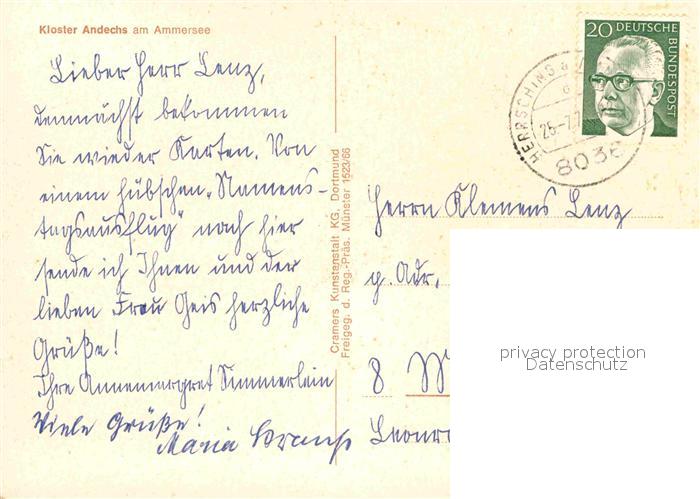 Kloster Andechs am Ammersee
Lieber Herr Lenz,
demnächst bekommen
Sie wieder Karten. Von
einem hübschen „Namens-
tagsausflug" nach hier
sende ich Ihnen und der
lieben Frau Geis herzliche
Grüße!
Ihre Annemargret Simmerlein
Viele Grüße!
Maria
Cramers Kunstanstalt KG, Dortmund
Freigeg. d. Reg.-Präs. Münster 1523/66
20 DEUTSCHE
BUNDESPOST
HERRSCHING
8036
Herrn Klemens Lenz
p. Adr.
8 M
Leonr
privacy protection
Datenschutz